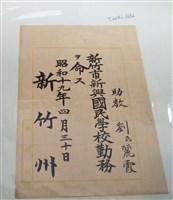 助教 劉氏麗霞
新竹市新興國民學校勤務
ヲ命ス
昭和十九年四月三十日
新竹州